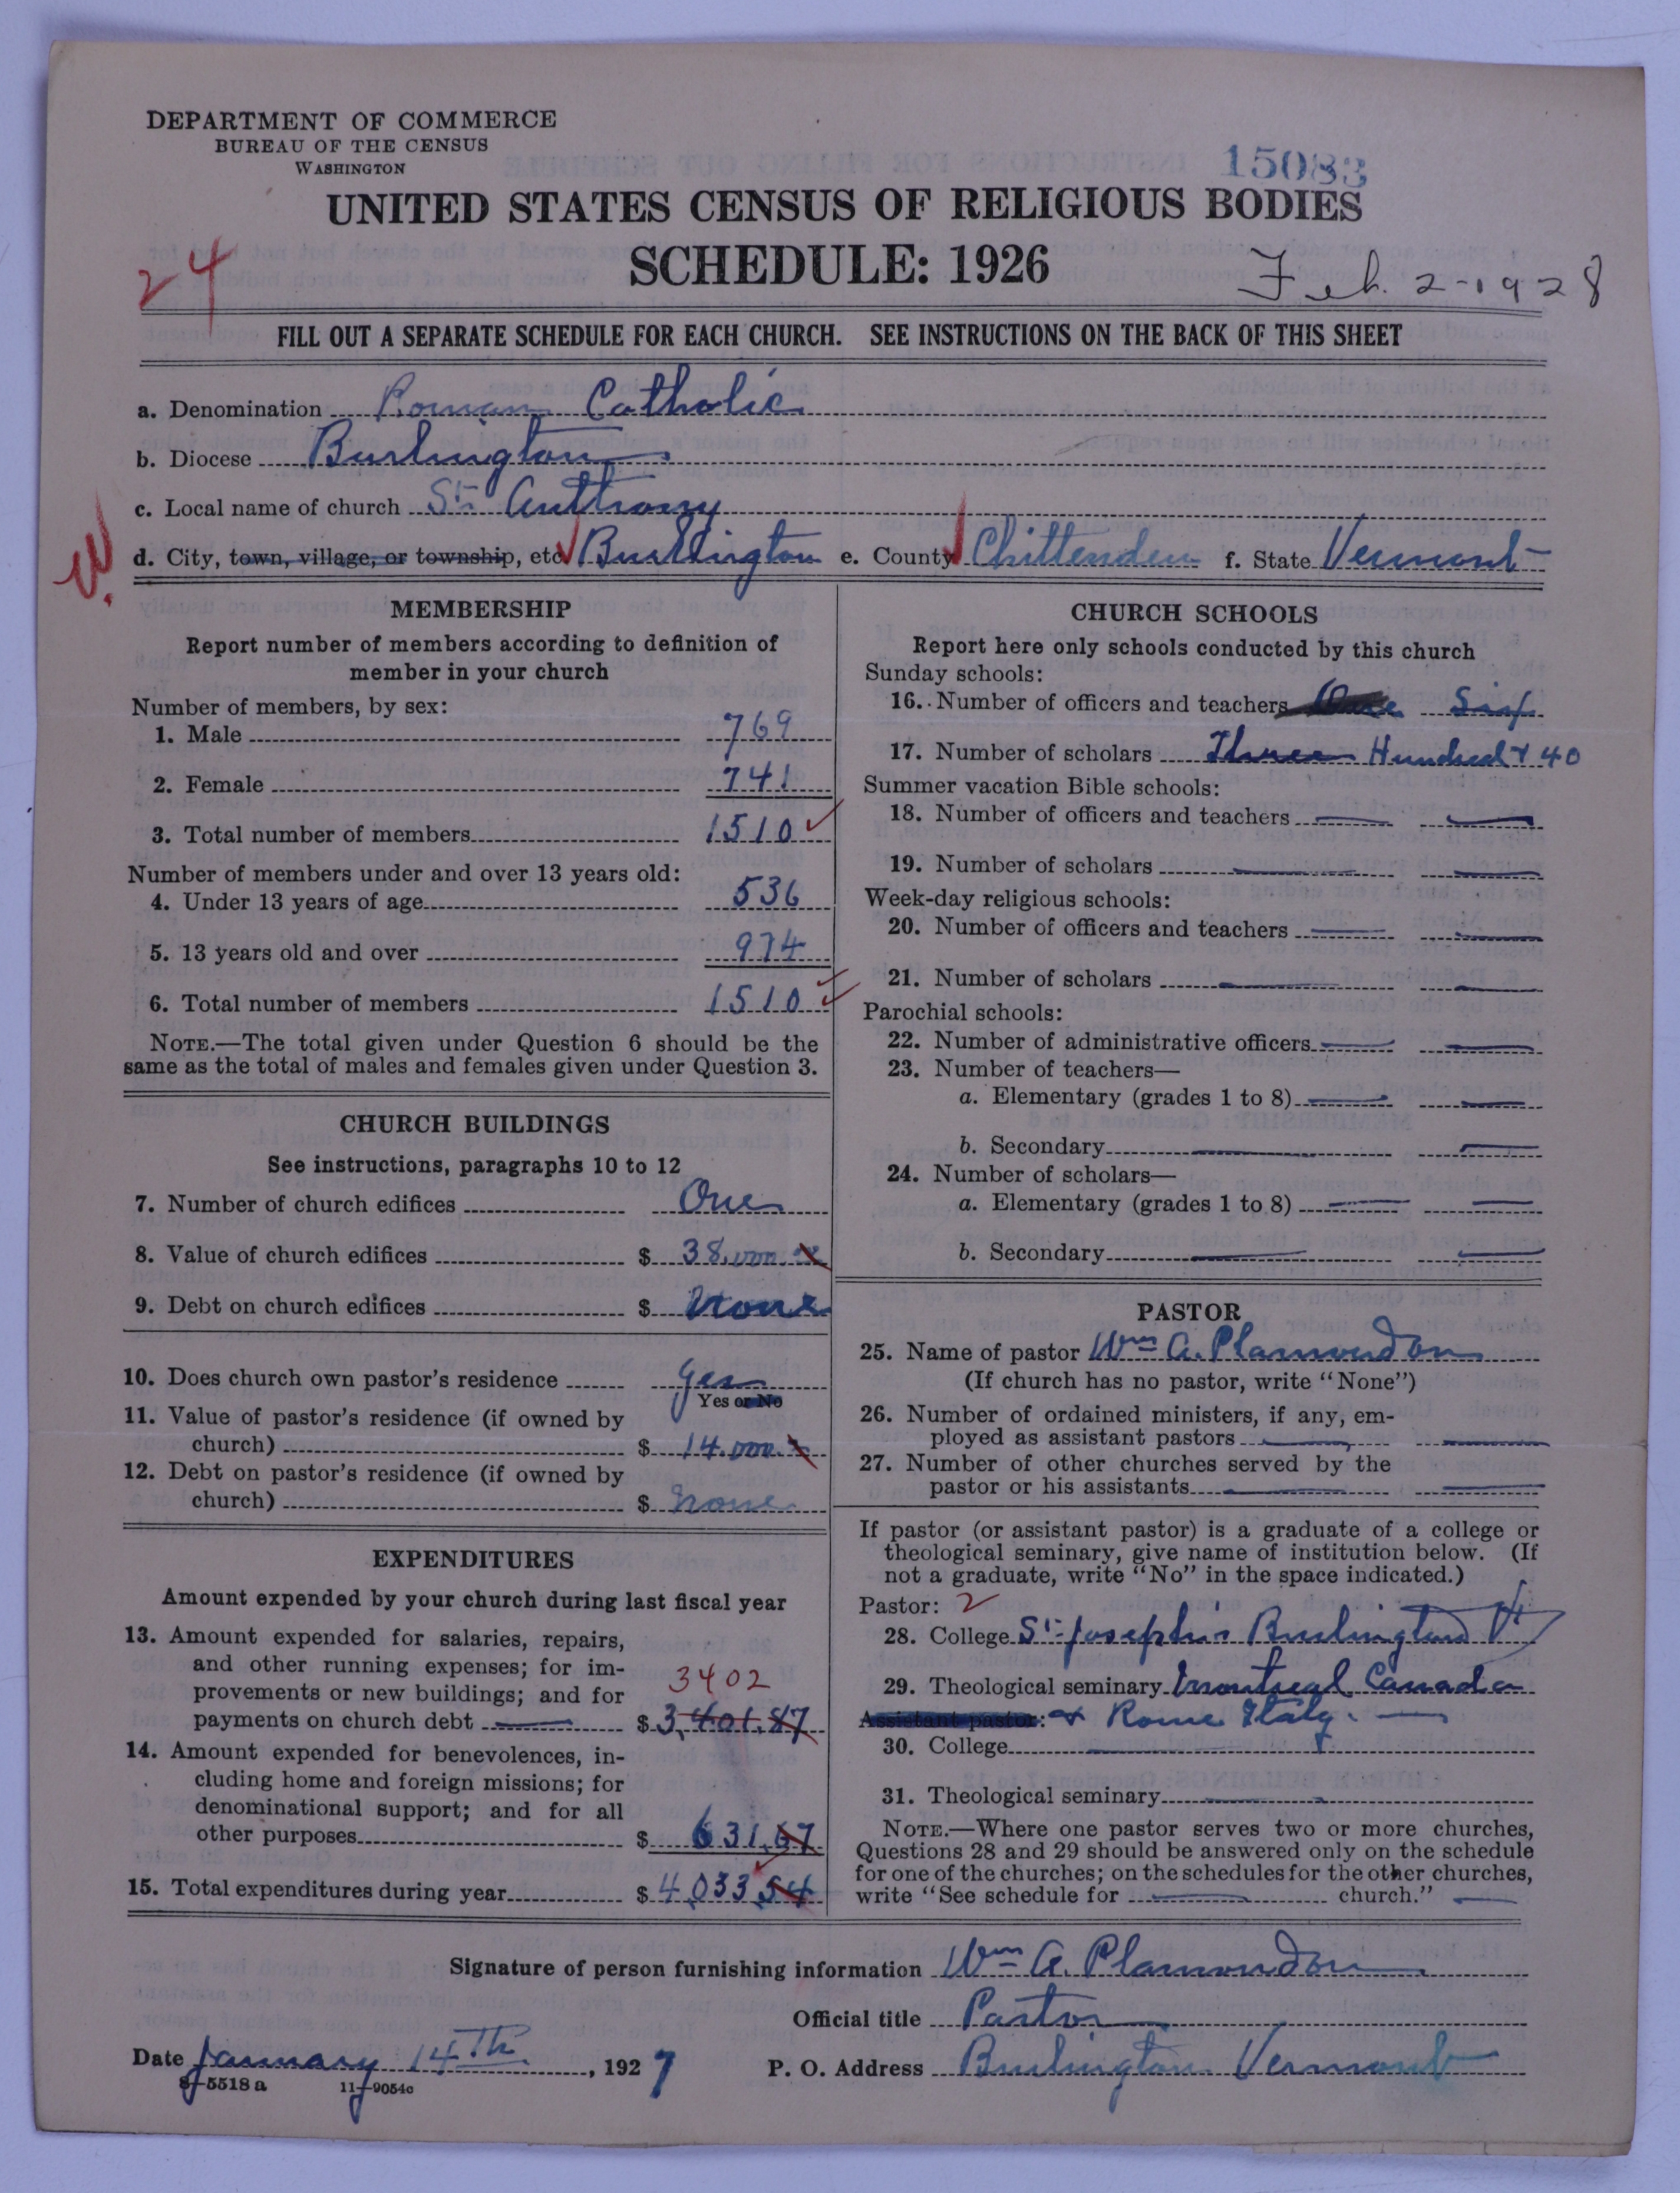 DEPARTMENT OF COMMERCE
BUREAU OF THE CENSUS
WASHINGTON
15083
UNITED STATES CENSUS OF RELIGIOUS BODIES
SCHEDULE: 1926
24
Feb. 2-1928
FILL OUT A SEPARATE SCHEDULE FOR EACH CHURCH. SEE INSTRUCTIONS ON THE BACK OF THIS SHEET
a. Denomination Roman Catholic
b. Diocese Burlington
c. Local name of church St. Anthony
d. City, town, village, or township, etc. Burlington e. County Chittenden f. State Vermont
MEMBERSHIP
Report number of members according to definition of
member in your church
Number of members, by sex:
1. Male 769
2. Female 741
3. Total number of members 1510
Number of members under and over 13 years old:
4. Under 13 years of age 536
5. 13 years old and over 974
6. Total number of members 1510
NOTE.—The total given under Question 6 should be the
same as the total of males and females given under Question 3.
CHURCH BUILDINGS
See instructions, paragraphs 10 to 12
7. Number of church edifices One
8. Value of church edifices $ 38,000
9. Debt on church edifices $ None
10. Does church own pastor's residence Yes
Yes or No
11. Value of pastor's residence (if owned by
church) $ 14.000
12. Debt on pastor's residence (if owned by
church) $ None
EXPENDITURES
Amount expended by your church during last fiscal year
13. Amount expended for salaries, repairs,
and other running expenses; for im-
provements or new buildings; and for 3402
payments on church debt $ 3,401.87
14. Amount expended for benevolences, in-
cluding home and foreign missions; for
denominational support; and for all
other purposes $ 631.67
15. Total expenditures during year $ 4,033.54
CHURCH SCHOOLS
Report here only schools conducted by this church
Sunday schools:
16. Number of officers and teachers One Six
17. Number of scholars Three Hundred & 40
Summer vacation Bible schools:
18. Number of officers and teachers
19. Number of scholars
Week-day religious schools:
20. Number of officers and teachers
21. Number of scholars
Parochial schools:
22. Number of administrative officers
23. Number of teachers—
a. Elementary (grades 1 to 8)
b. Secondary
24. Number of scholars—
a. Elementary (grades 1 to 8)
b. Secondary
PASTOR
25. Name of pastor Wm A. Plamondon
(If church has no pastor, write "None")
26. Number of ordained ministers, if any, em-
ployed as assistant pastors
27. Number of other churches served by the
pastor or his assistants
If pastor (or assistant pastor) is a graduate of a college or
theological seminary, give name of institution below. (If
not a graduate, write "No" in the space indicated.)
Pastor: 2
28. College St. Joseph's Burlington Vt
29. Theological seminary Montreal Canada
Assistant pastor: & Rome Italy.
30. College
31. Theological seminary
NOTE.—Where one pastor serves two or more churches,
Questions 28 and 29 should be answered only on the schedule
for one of the churches; on the schedules for the other churches,
write "See schedule for church."
Signature of person furnishing information Wm A. Plamondon
Official title Pastor
Date January 14th, 1927
P. O. Address Burlington Vermont
8-5518 a 11-9054c